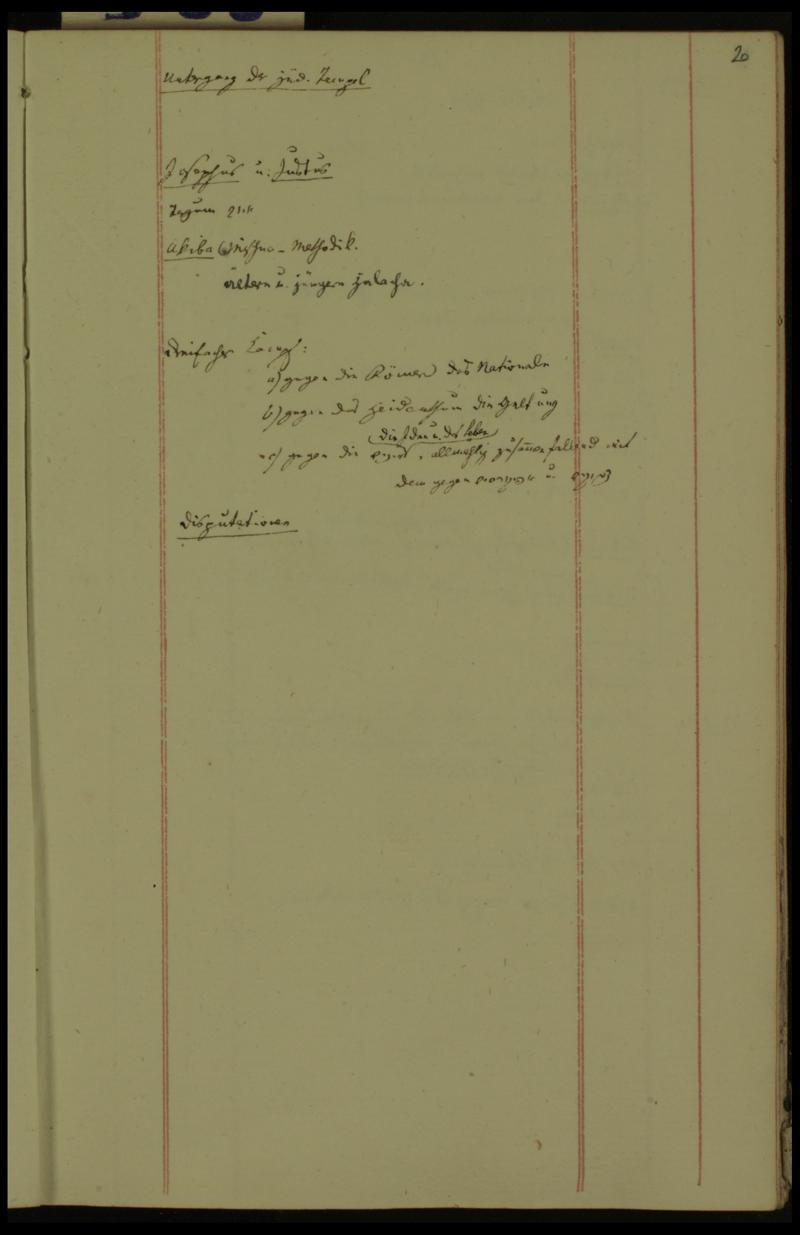 20
Untergang der jüd. Tempel
Josephus u. Justus
Akiba Mischna-Methodik.
ältern u. jüngern Halacha.
Dreifacher Kampf:
a) gegen die Römer das Nationale
b) gegen das Heidenthum die Geltung
die Idee u. das Leben
c) gegen die allmählig zusammenfallend mit
dem gegen u.
Disputationen